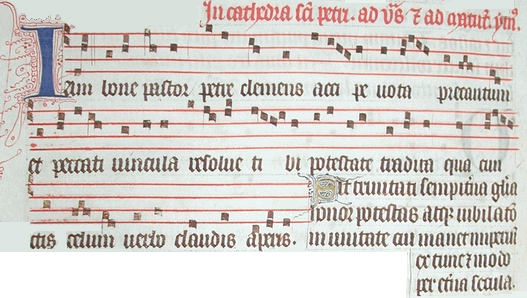 In cathedra sci petri. ad vs ⁊ ad matut. ymn.
Iam bone pastor petre clemens acci pe uota precantum
et peccati uincula resolue ti bi potestate tradita qua cun
ctis celum uerbo claudis aperis.
Sit trinitati sempitna glia
honor potestas atq; iubilatio
in unitate cui manet imperiu
ex tunc ⁊ modo
per etna secula.